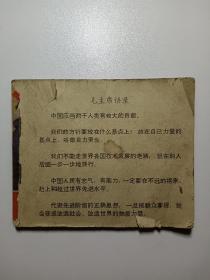 毛主席语录
中国应当对于人类有较大的贡献。
我们的方针要放在什么基点上？放在自己力量的
基点上，叫做自力更生。
我们不能走世界各国技术发展的老路，跟在别人
后面一步一步地爬行。
中国人民有志气，有能力，一定要在不远的将来，
赶上和超过世界先进水平。
代表先进阶级的正确思想，一旦被群众掌握，就
会变成改造社会、改造世界的物质力量。